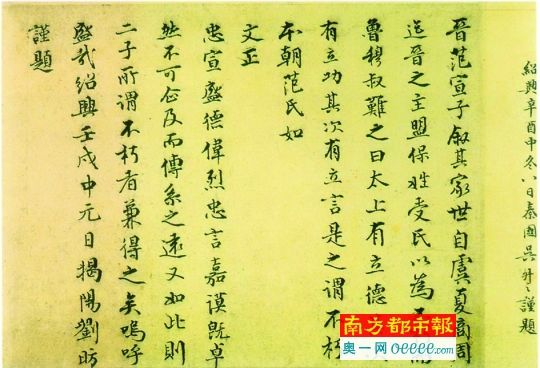 紹興辛酉中冬八日秦國吳謹題
晉范宣子叙其家世自虞夏商周
迄晉之主盟保姓受氏以為
魯穆叔難之曰太上有立德
有立功其次有立言是之謂不朽
本朝范氏如
文正
忠宣盛德偉烈忠言嘉謨既卓
然不可企及而傳系之遠又如此則
二子所謂不朽者兼得之矣嗚呼
盛哉紹興壬戌中元日揭陽劉昉
謹題
南方都市報
奥一网 oeeee.com